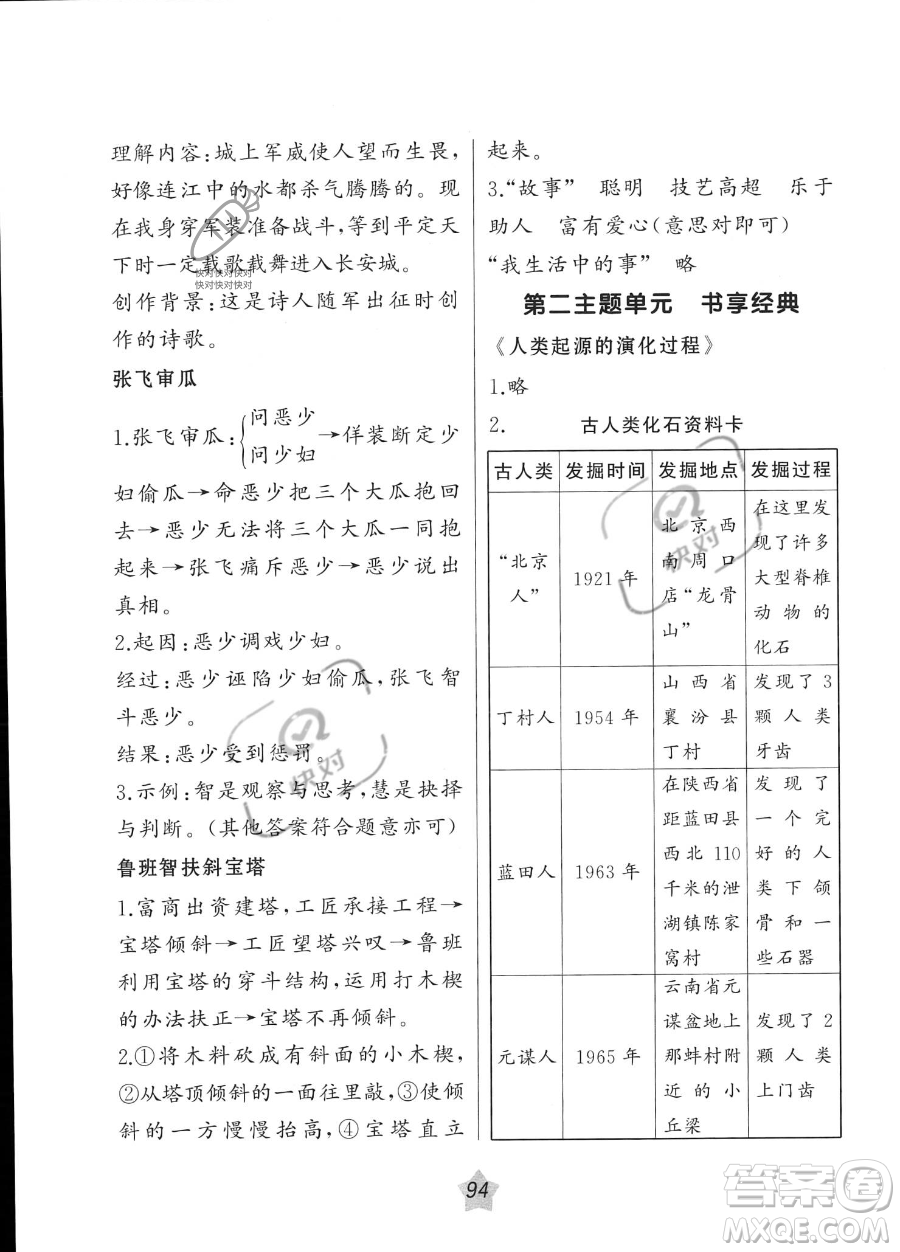 理解内容:城上军威使人望而生畏,
好像连江中的水都杀气腾腾的。现
在我身穿军装准备战斗,等到平定天
下时一定载歌载舞进入长安城。
快对快对快对
快对快对快对
创作背景:这是诗人随军出征时创
作的诗歌。
张飞审瓜
1.张飞审瓜:{问恶少
问少妇→佯装断定少
妇偷瓜→命恶少把三个大瓜抱回
去→恶少无法将三个大瓜一同抱
起来→张飞痛斥恶少→恶少说出
真相。
2.起因:恶少调戏少妇。
经过:恶少诬陷少妇偷瓜,张飞智
斗恶少。
结果:恶少受到惩罚。
3.示例:智是观察与思考,慧是抉择
与判断。(其他答案符合题意亦可)
鲁班智扶斜宝塔
1.富商出资建塔,工匠承接工程→
宝塔倾斜→工匠望塔兴叹→鲁班
利用宝塔的穿斗结构,运用打木楔
的办法扶正→宝塔不再倾斜。
2.①将木料砍成有斜面的小木楔,
②从塔顶倾斜的一面往里敲,③使倾
斜的一方慢慢抬高,④宝塔直立
起来。
3.“故事” 聪明 技艺高超 乐于
助人 富有爱心(意思对即可)
“我生活中的事” 略
第二主题单元 书享经典
《人类起源的演化过程》
1.略
2. 古人类化石资料卡
古人类 发掘时间 发掘地点 发掘过程
“北京
人”
1921 年
北京西
南周口
店“龙骨
山”
在这里发
现了许多
大型脊椎
动物的
化石
丁村人
1954 年
山西省
襄汾县
丁村
发现了 3
颗人类
牙齿
蓝田人
1963 年
在陕西省
距蓝田县
西北 110
千米的泄
湖镇陈家
窝村
发现了
一个完
好的人
类下颌
骨和一
些石器
元谋人
1965 年
云南省元
谋盆地上
那蚌村附
近的小
丘梁
发现了 2
颗人类
上门齿
快对
快对
94
答案卷
MXQE.COM